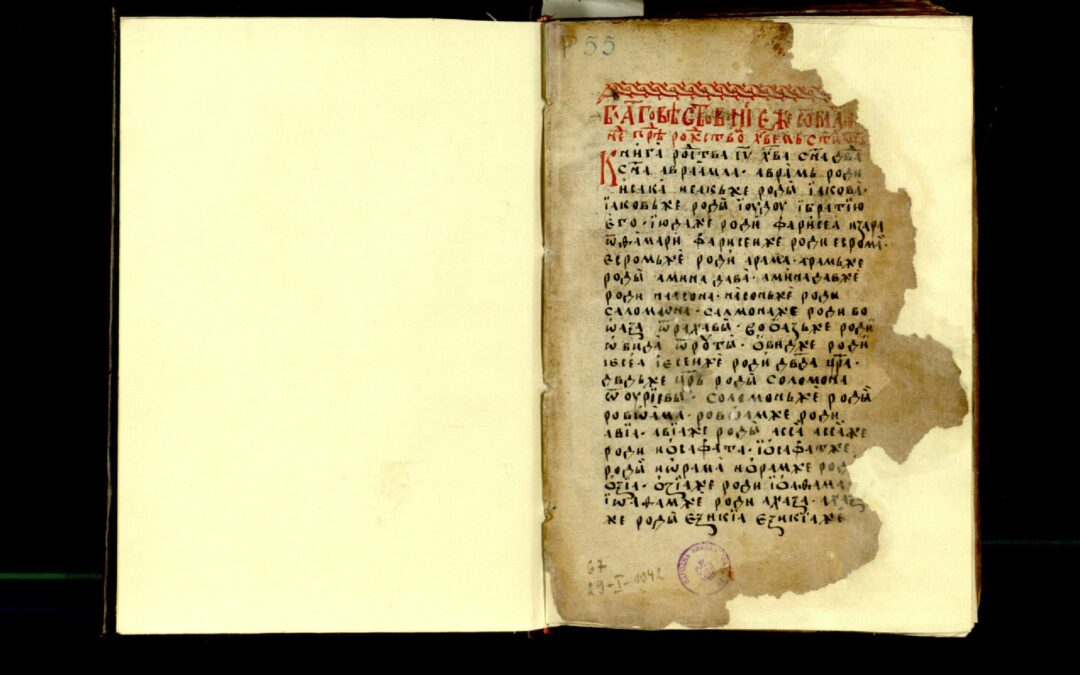 Р 55
Благовѣствованїе еже ѿ Ма
пре рожьство хв҃
Книга роства іѵ хв҃а сн҃а дв҃да
сн҃а авраамла · аврамь роди
исака исакьже роди їакова ·
їаковьже роди їоудоу їбратїю
его · їюдаже роди фарисеа изара
ѿѳамари фарисенже роди еврома
евромьже роди арама · арамьже
роди аминадава · аминадавже
роди наасона · насоньже роди
саломѡна · салмонаже роди во
ѡаза ѿрахавы · воѡазьже роди
ѡвида ѿроуты · ѡвидже роди
іесеа їесенже роди дв҃да цр҃а ·
дв҃дьже цр҃ь роди соломона
ѿоурїевы · соломоньже роди
ровѡама · ровѡамже роди
авїа · авїаже роди асса ассаже
роди иѡсафата · їѡсафатже
роди иѡрама иѡрамже роди
ѻзїа · ѻзїаже роди їоаѳама
їѡаѳамже роди ахаза · ахаз
же роди езикїа езикїаже
67
29-I-1942